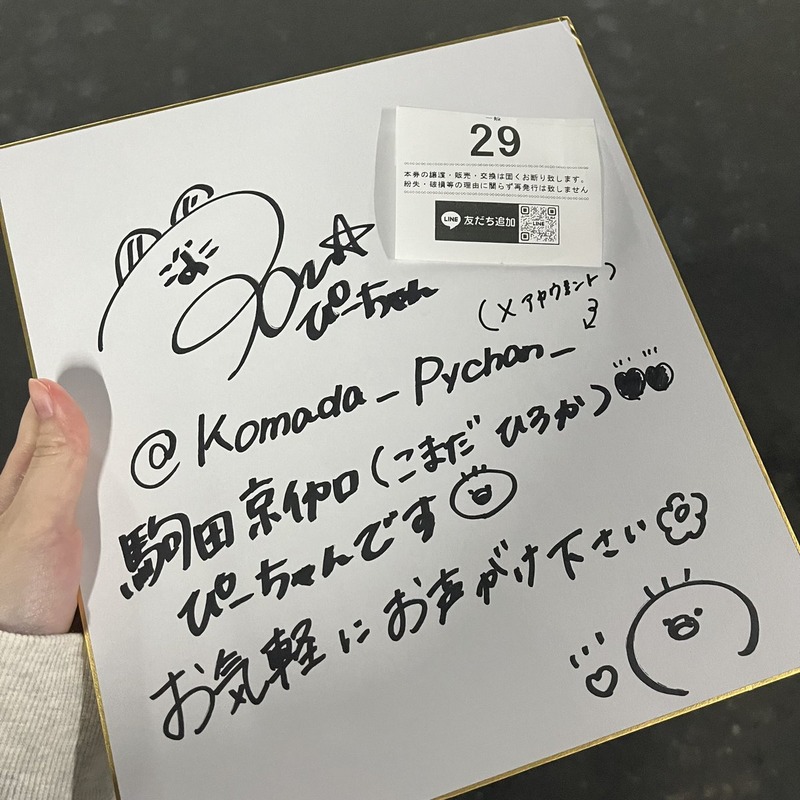 一般
29
本券の譲渡・販売・交換は固くお断り致します。
紛失・破損等の理由に関らず再発行は致しません
LINE 友だち追加
LINE
ぴーちゃん
(X アカウント)
@Komada_Pychan_
駒田京伽(こまだ ひろか)
ぴーちゃんです
お気軽にお声がけ下さい